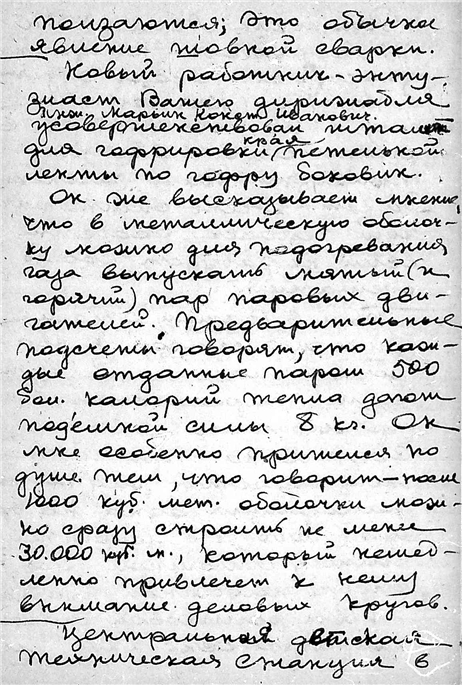 ползаются; это обычное
явление шовной сварки.
Новый работник-энту-
зиаст Вашего дирижабля
Инж. Марьин Конст. Иванович.
усовершенствовал штамп
для гофрировки края петельной
ленты по гофру боковин.
Он же высказывает мнение,
что в металлическую оболоч-
ку можно для подогревания
газа выпускать мятый (и
горячий) пар паровых дви-
гателей. Предварительные
подсчеты говорят, что каж-
дые отданные паром 500
бол. калорий тепла дают
подъемной силы 8 кг. Он
мне особенно пришелся по
душе тем, что говорит – после
1000 куб. мет. оболочки мож-
но сразу строить не менее
30.000 куб. м., который немед-
ленно привлечет к нему
внимание деловых кругов.
Центральная детская
техническая станция в